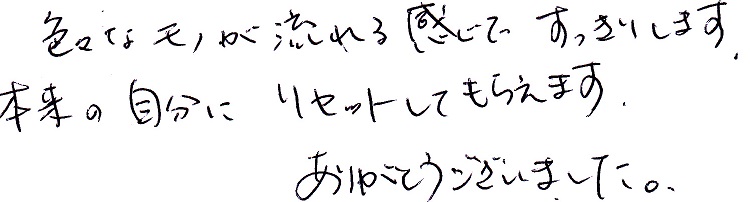 色々なモノが流れる感じで すっきりします.
本来の自分に リセットしてもらえます.
ありがとうございました。.